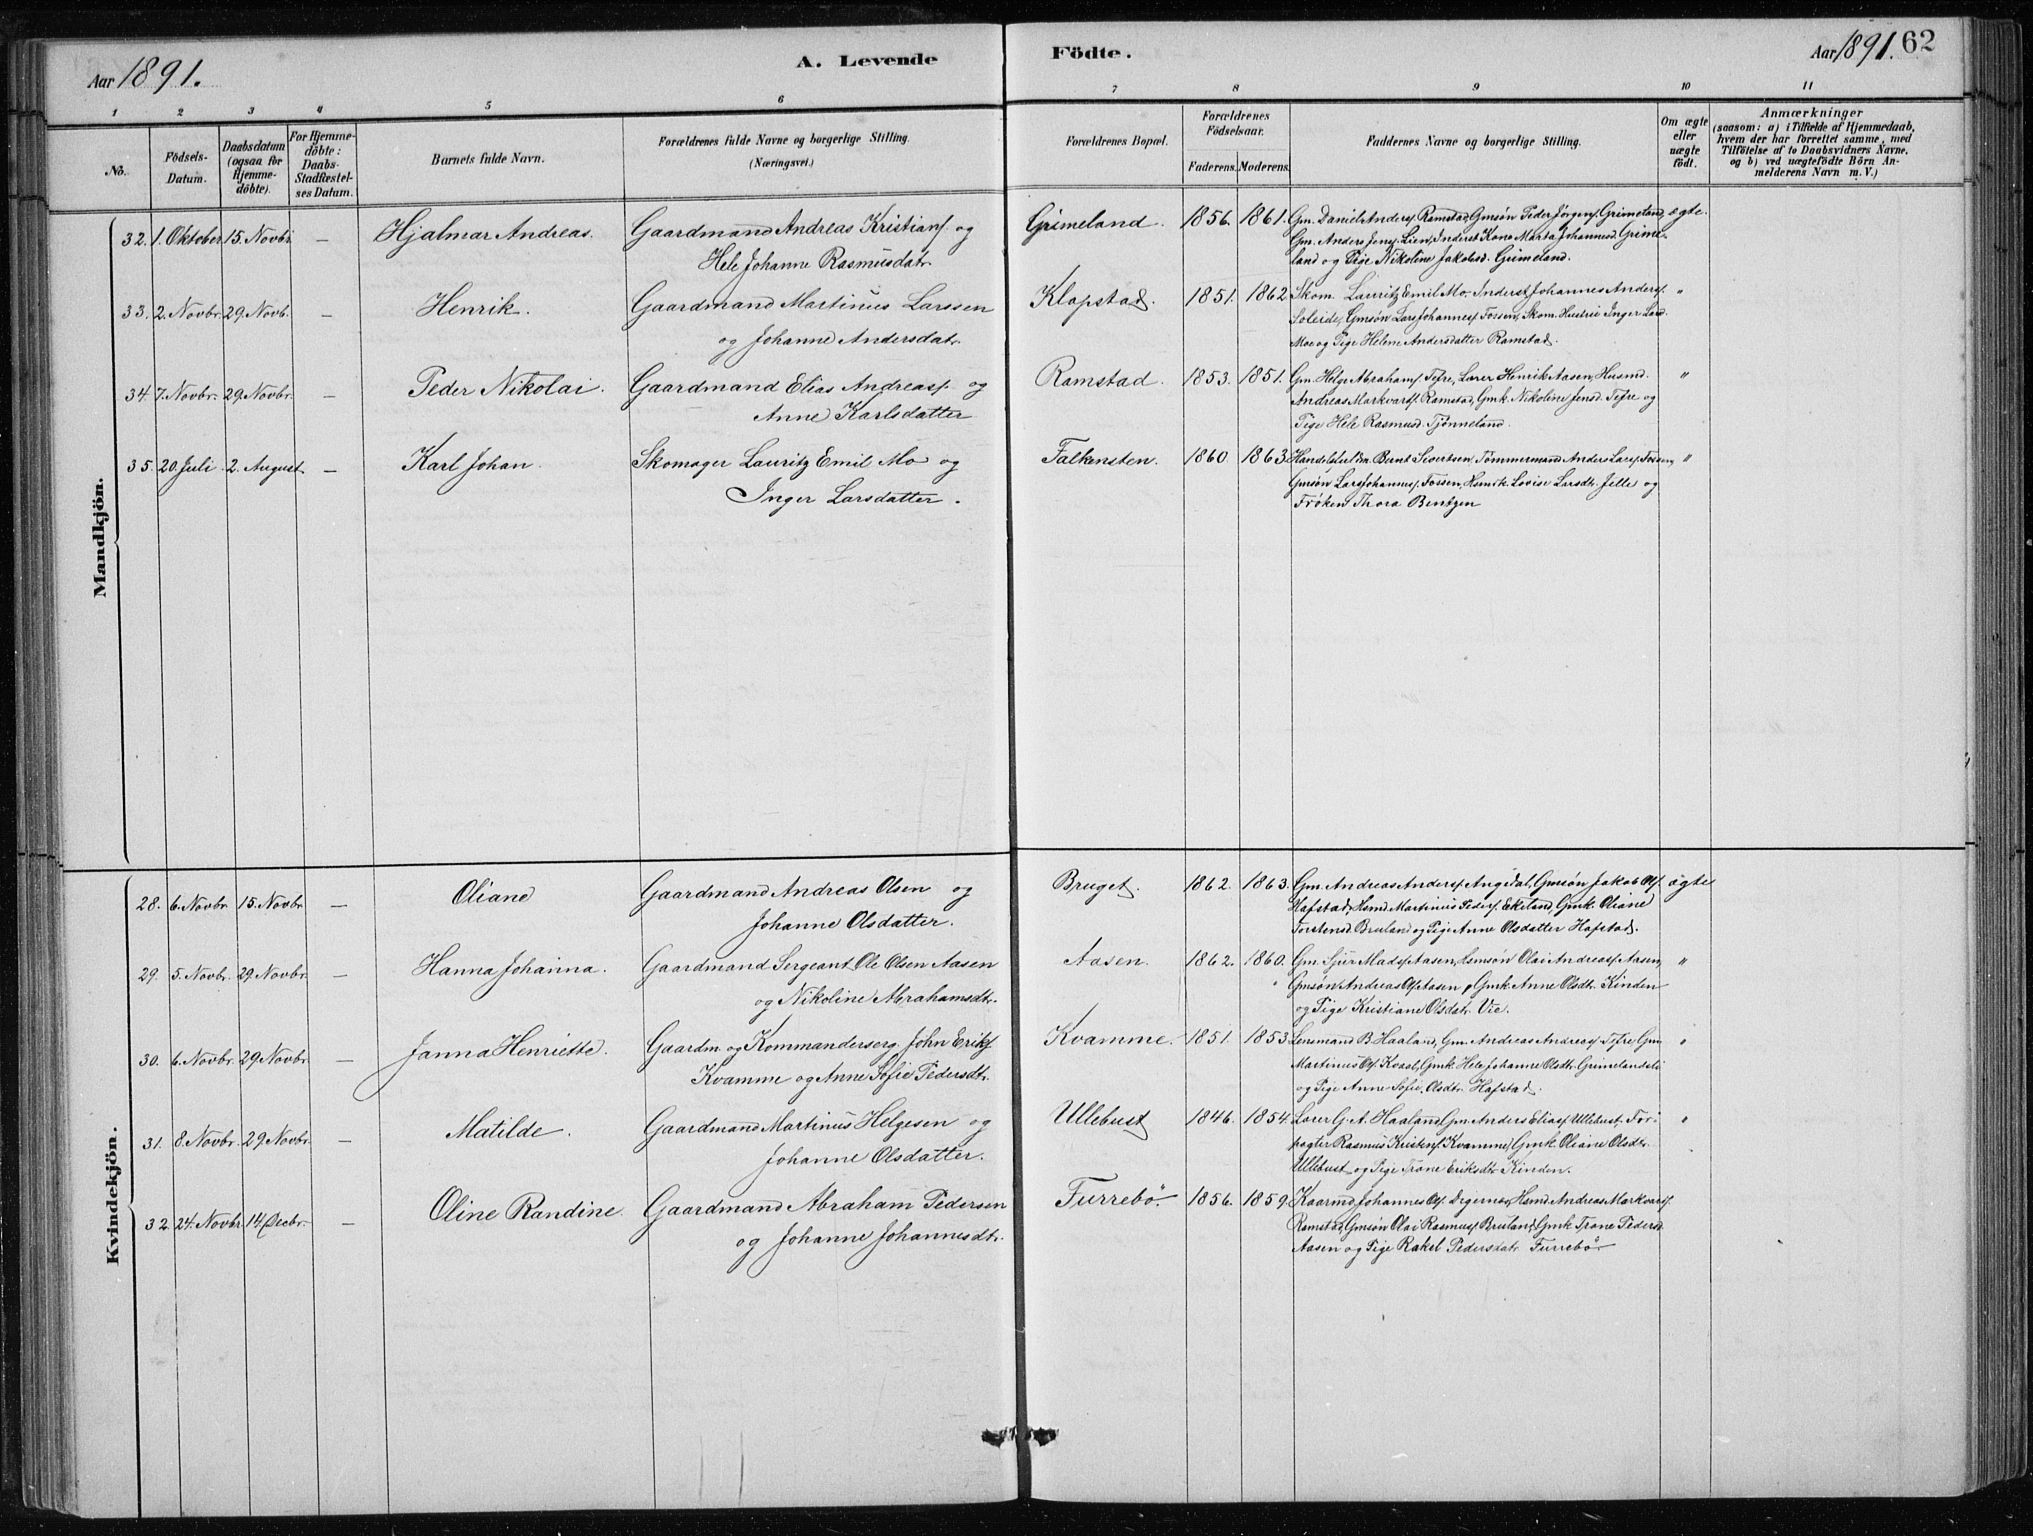 Aar 1891.
A. Levende
Födte.
Aar 1891. 62
1 2 3 4 5 6 7 8 9 10 11
No.
Födsels-Datum.
Daabsdatum (ogsaa for Hjemmedöbte).
For Hjemmedöbte: Daabs-Stadfæstelses Datum.
Barnets fulde Navn.
Forældrenes fulde Navne og borgerlige Stilling. (Næringsvei.)
Forældrenes Bopæl.
Forældrenes Födselsaar.
Faderens. Moderens.
Faddernes Navne og borgerlige Stilling.
Om ægte eller uægte födt.
Anmærkninger
(saasom: a) i Tilfælde af Hjemmedaab, hvem der har forrettet samme, med Tilföielse af to Daabsvidners Navne, og b) ved uægtefödte Börn Anmelderens Navn m. V.)
Mandkjön.
32. 1. Oktober 15. Novbr. — Hjalmar Andreas. Gaardmand Andreas Kristians. og
Hele Johanne Rasmusdatr.
Grimeland. 1856. 1861. Gm. Daniel Anders. Ramstad, Gmsøn Peder Jörgens. Grimeland, ægte.
Gm. Anders Jens. Lien, Inderst Kone Marta Johannesd. Grime-
land og Pige Nikoline Jakobsd. Grimeland.
33. 2. Novbr. 29. Novb. — Henrik. Gaardmand Martinus Larssen
og Johanne Andersdatr.
Klopstad. 1851. 1862 Skom. Lauritz Emil Mo, Inderst Johannes Anders. "
Soleide, Gmsøn Lars Johannes. Fossen, Skom. Hustrie Inger Larsd.
Moe og Pige Helene Andersdatter Ramstad.
34. 7. Novbr. 29. Novbr. — Peder Nikolai. Gaardmand Elias Andreas. og
Anne Karlsdatter
Ramstad. 1853. 1851. Gm. Helge Abrahams. Tefre, Lærer Henrik Aasen, Husmd. "
Andreas Markvards. Ramstad, Gmk. Nikoline Jensd. Tefre og
Pige Hele Rasmusd. Tjönneland.
35. 20. Juli 2. August — Karl Johan. Skomager Lauritz Emil Mo og
Inger Larsdatter.
Falkensten. 1860. 1863 Bernt Sivertsen, Tömmermand Anders Lars. Fossen, "
Gmsøn Lars Johannes. Fossen, Lovise Larsdtr. Jelle og
Fröken Thora Bentzen
Kvindekjön.
28. 6. Novbr. 15. Novbr. — Oliane Gaardmand Andreas Olsen og
Johanne Olsdatter.
Bruget. 1862. 1863. Gm. Andreas Anders. Angedal, Gmsøn Jakob Ols. ægte
Hafstad, Hsmd Martinus Peders. Ekeland, Gmk. Oliane
Torstensd. Bruland og Pige Anne Olsdatter Hafstad.
29. 5. Novbr. 29 Novbr. — Hanna Johanna. Gaardmand Sergeant Ole Olsen Aasen
og Nikoline Abrahamsdtr.
Aasen. 1862. 1860. Gm. Sjur Mads. Aasen, Hsmsøn Olai Andreas. Aasen, "
Gmsøn Andreas Ols. Aasen, Gmk. Anne Olsdtr. Kinden
og Pige Kristiane Olsdtr. Vie.
30. 6. Novbr. 29 Novbr. — Janna Henriette. Gaardm. og Kommanderserg. John Eriks.
Kvamme og Anne Sofie Pedersdtr.
Kvamme. 1851. 1853. Lensmand B. Haaland, Gm. Andreas Andreas. Tefre, Gm. "
Martinus Ols. Kvaal, Gmk. Hele Johanne Olsdtr. Grimelandsli
og Pige Anne Sofie Olsdtr. Hafstad.
31. 8. Novbr. 29 Novbr. — Matilde. Gaardmand Martinus Helgesen og
Johanne Olsdatter.
Ullebust 1846. 1854. Lærer G. A. Haaland, Gm. Anders Elias. Ullebust, For- "
pagter Rasmus Kristens. Kvamme, Gmk. Oliane Olsdtr.
Ullebust og Pige Trone Eriksdtr. Kinden.
32. 24. Novbr. 14 Decbr. — Oline Randine. Gaardmand Abraham Pedersen
og Johanne Johannesdtr.
Furrebö. 1856. 1859. Kaarmd Johannes Ols. Degernæs, Hsmd Andreas Markvards.
Ramstad, Gmsøn Olai Rasmus. Bruland, Gmk. Trone Pedersd.
Aasen og Pige Rakel Pedersdatr. Furrebö.